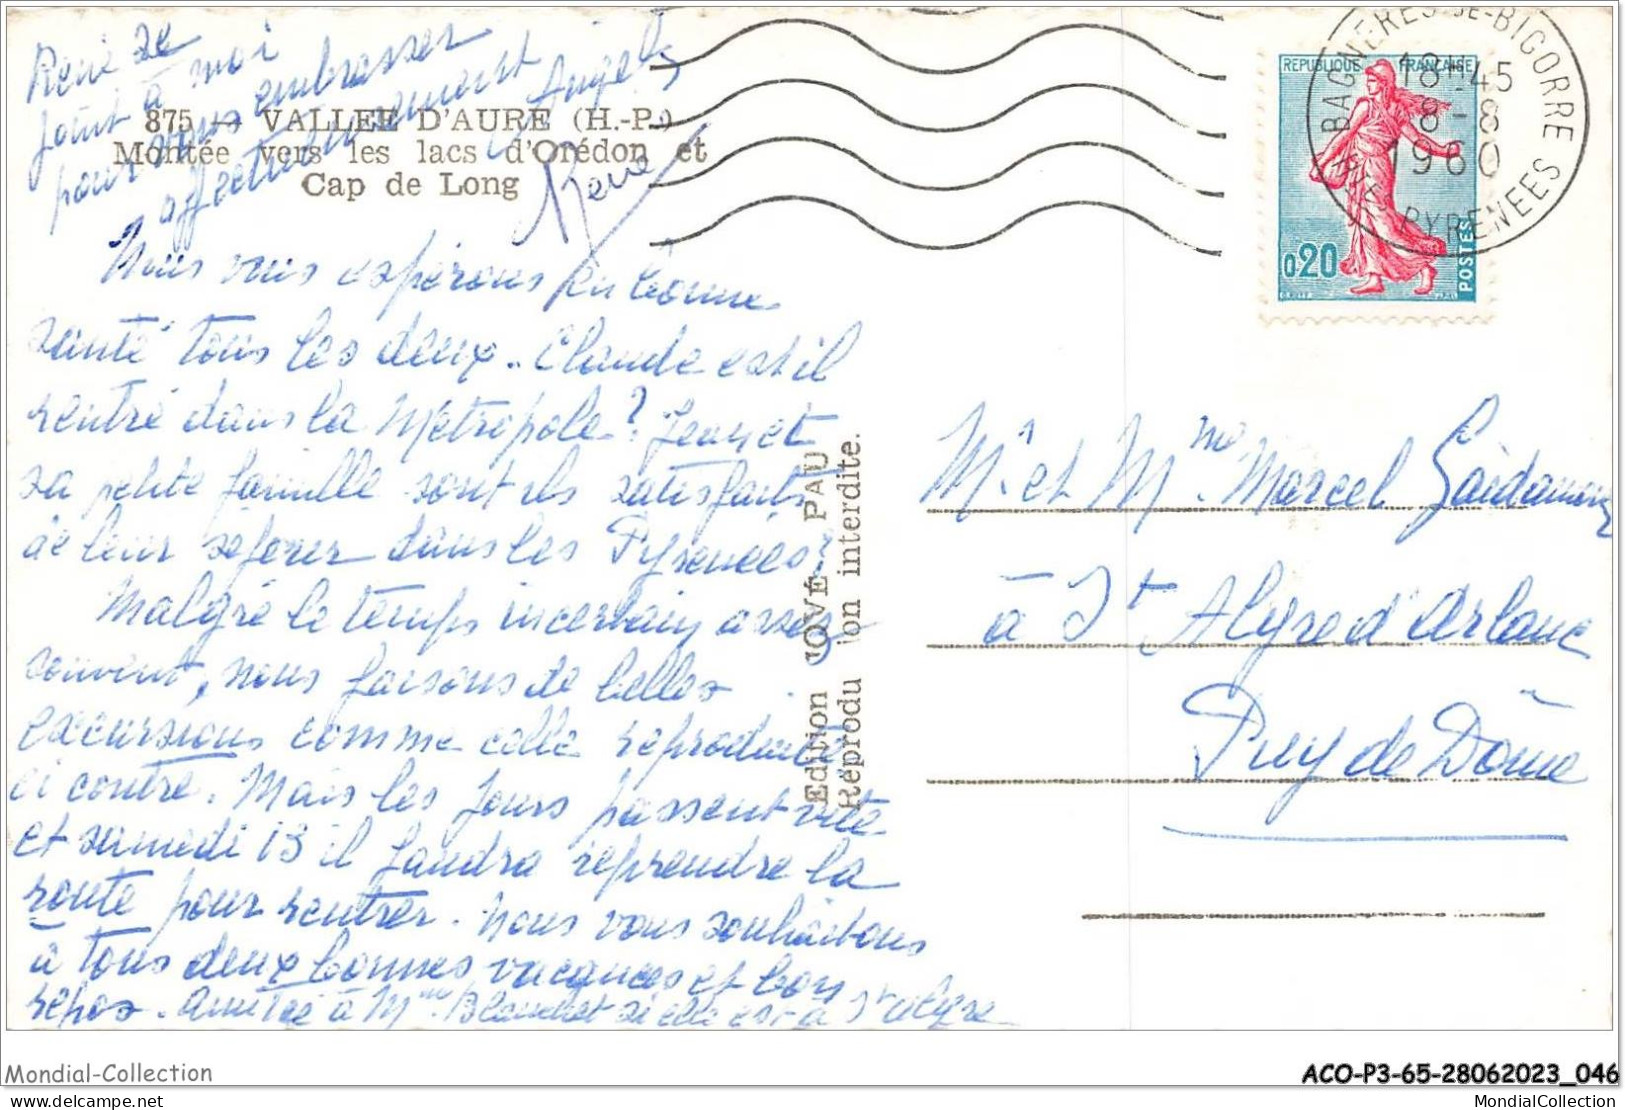 René se
joint à moi
pour vous embrasser
affectueusement
Angel
René
875 — VALLEE D'AURE (H.-P.)
Montée vers les lacs d'Orédon et
Cap de Long
Nous vous espérons en bonne
santé tous les deux. Claude est il
rentré dans la Métropole? Jean et
sa petite famille sont ils satisfaits
de leur séjour dans les Pyrénées?
Malgré le temps incertain assez
souvent, nous faisons de belles
excursions comme celle reproduite
ci contre. Mais les jours passent vite
et samedi 13 il faudra reprendre la
route pour rentrer. Nous vous souhaitons
à tous deux bonnes vacances et bon
repos. Amitié à Mme Blanchet si elle est à St Alyre
Edition JOVÉ PAU
Réprodu ion interdite.
REPUBLIQUE FRANÇAISE
0,20
POSTES
BAGNERES-DE-BIGORRE
18H45
8-8
1960
HTES PYRENEES
Mr et Mme Marcel
à St Alyre d'Arlanc
Puy de Dôme
Mondial-Collection
ACO-P3-65-28062023_046
delcampe.net
MondialCollection